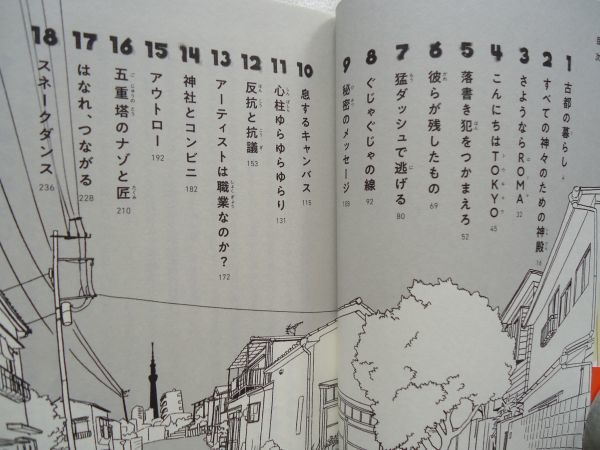 目次
1 古都の暮らし 4
2 すべての神々のための神殿 16
3 さようならROMA 32
4 こんにちはTOKYO 45
5 落書き犯をつかまえろ 52
6 彼らが残したもの 69
7 猛ダッシュで逃げる 80
8 ぐじゃぐじゃの線 92
9 秘密のメッセージ 109
10 息するキャンバス 115
11 心柱ゆらゆらゆらり 131
12 反抗と抗議 153
13 アーティストは職業なのか? 172
14 神社とコンビニ 182
15 アウトロー 192
16 五重塔のナゾと匠 210
17 はなれ、つながる 228
18 スネークダンス 236